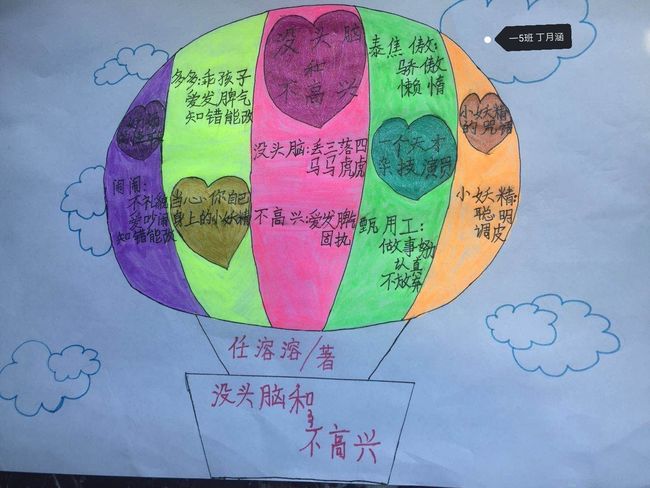 一5班 丁月涵
没头脑
和
不高兴
没头脑:丢三落四
马马虎虎
不高兴:爱发脾气
固执
多多:乖孩子
爱发脾气
知错能改
当心你自己
身上的小妖精
闹闹:
不礼貌
爱吵闹
知错能改
泰焦傲:
骄傲
懒惰
一个天才
杂技演员
甄用工:
做事努力
认真
不放弃
小妖精
的咒语
小妖精:
聪明
调皮
任溶溶/著
没头脑和
不高兴